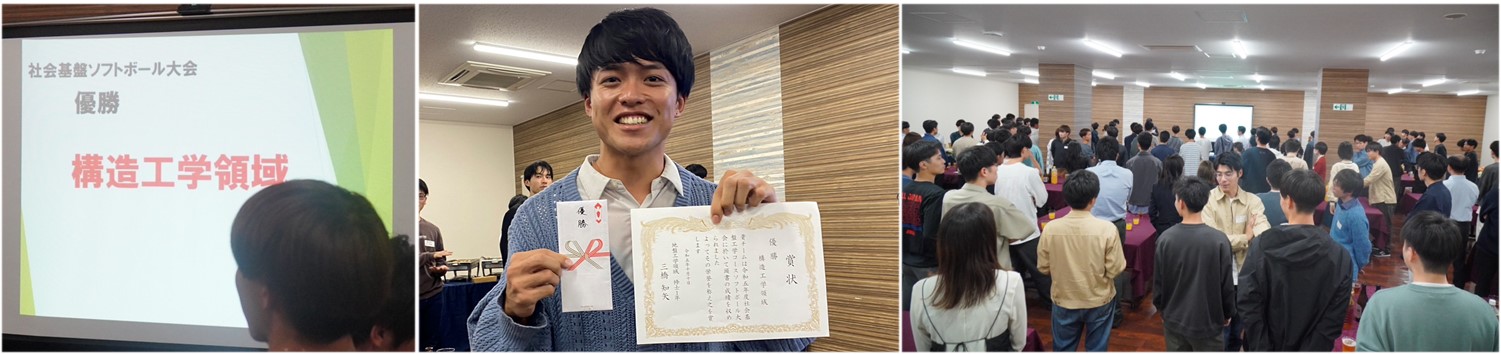 社会基盤ソフトボール大会
優勝
構造工学領域
優勝
賞状
優勝
構造工学領域
貴チームは令和五年度社会基
盤工学コースソフトボール大
会に於いて頭書の成績を収め
られました
よってその栄誉を称えて賞
します
地盤工学領域 修士一年
三橋 知矢